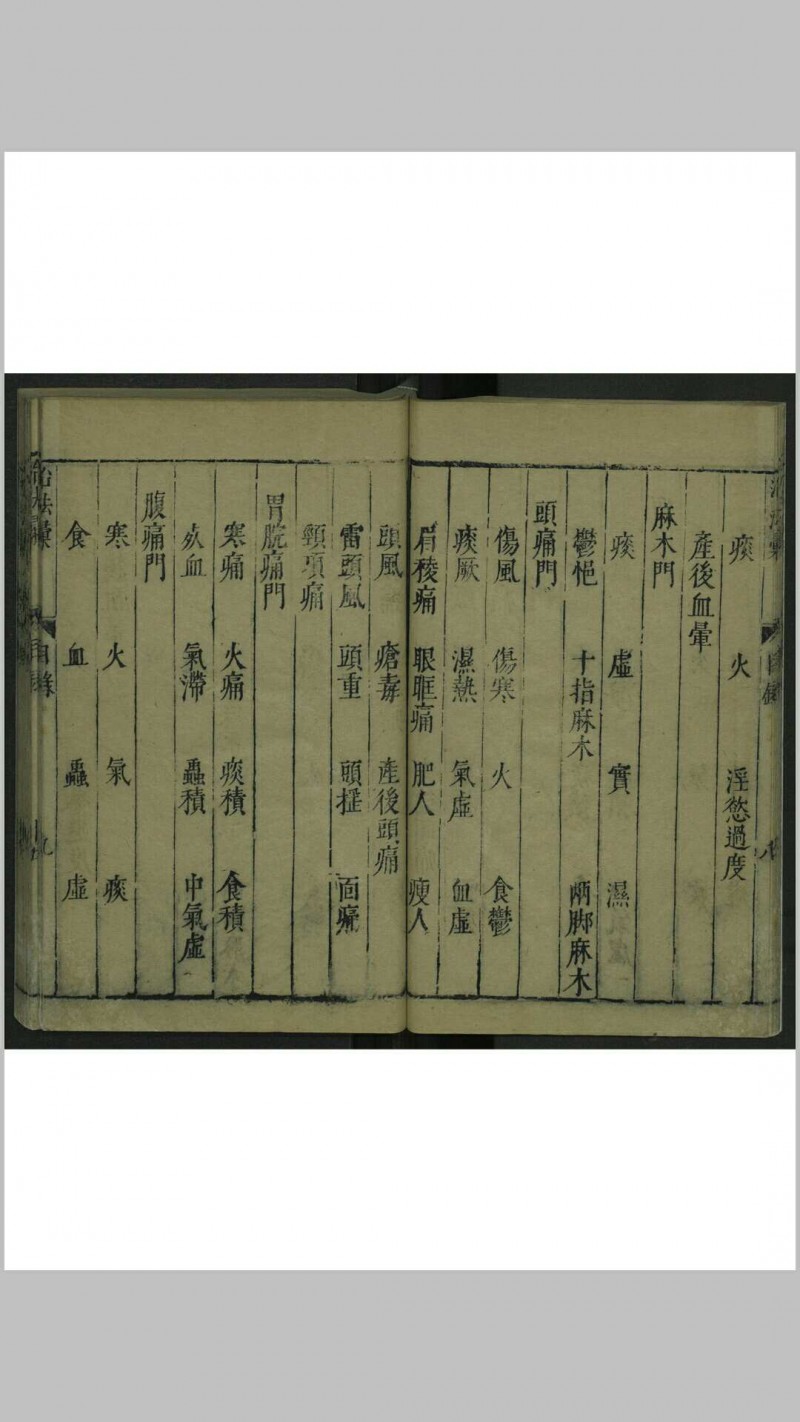 痰 火 淫慾過度
產後血暈
麻木門
痰 虛 實 濕
鬱悒 十指麻木 兩脚麻木
頭痛門
傷風 傷寒 火 食鬱
痰厥 濕熱 氣虛 血虛
眉稜痛 眼眶痛 肥人 瘦人
頭風 瘡毒 產後頭痛
雷頭風 頭重 頭搖 面痛
頸項痛
胃脘痛門
寒痛 火痛 痰積 食積
血 氣滯 蟲積 中氣虛
腹痛門
寒 火 氣 痰
食 血 蟲 虛
治法彙 目錄 九